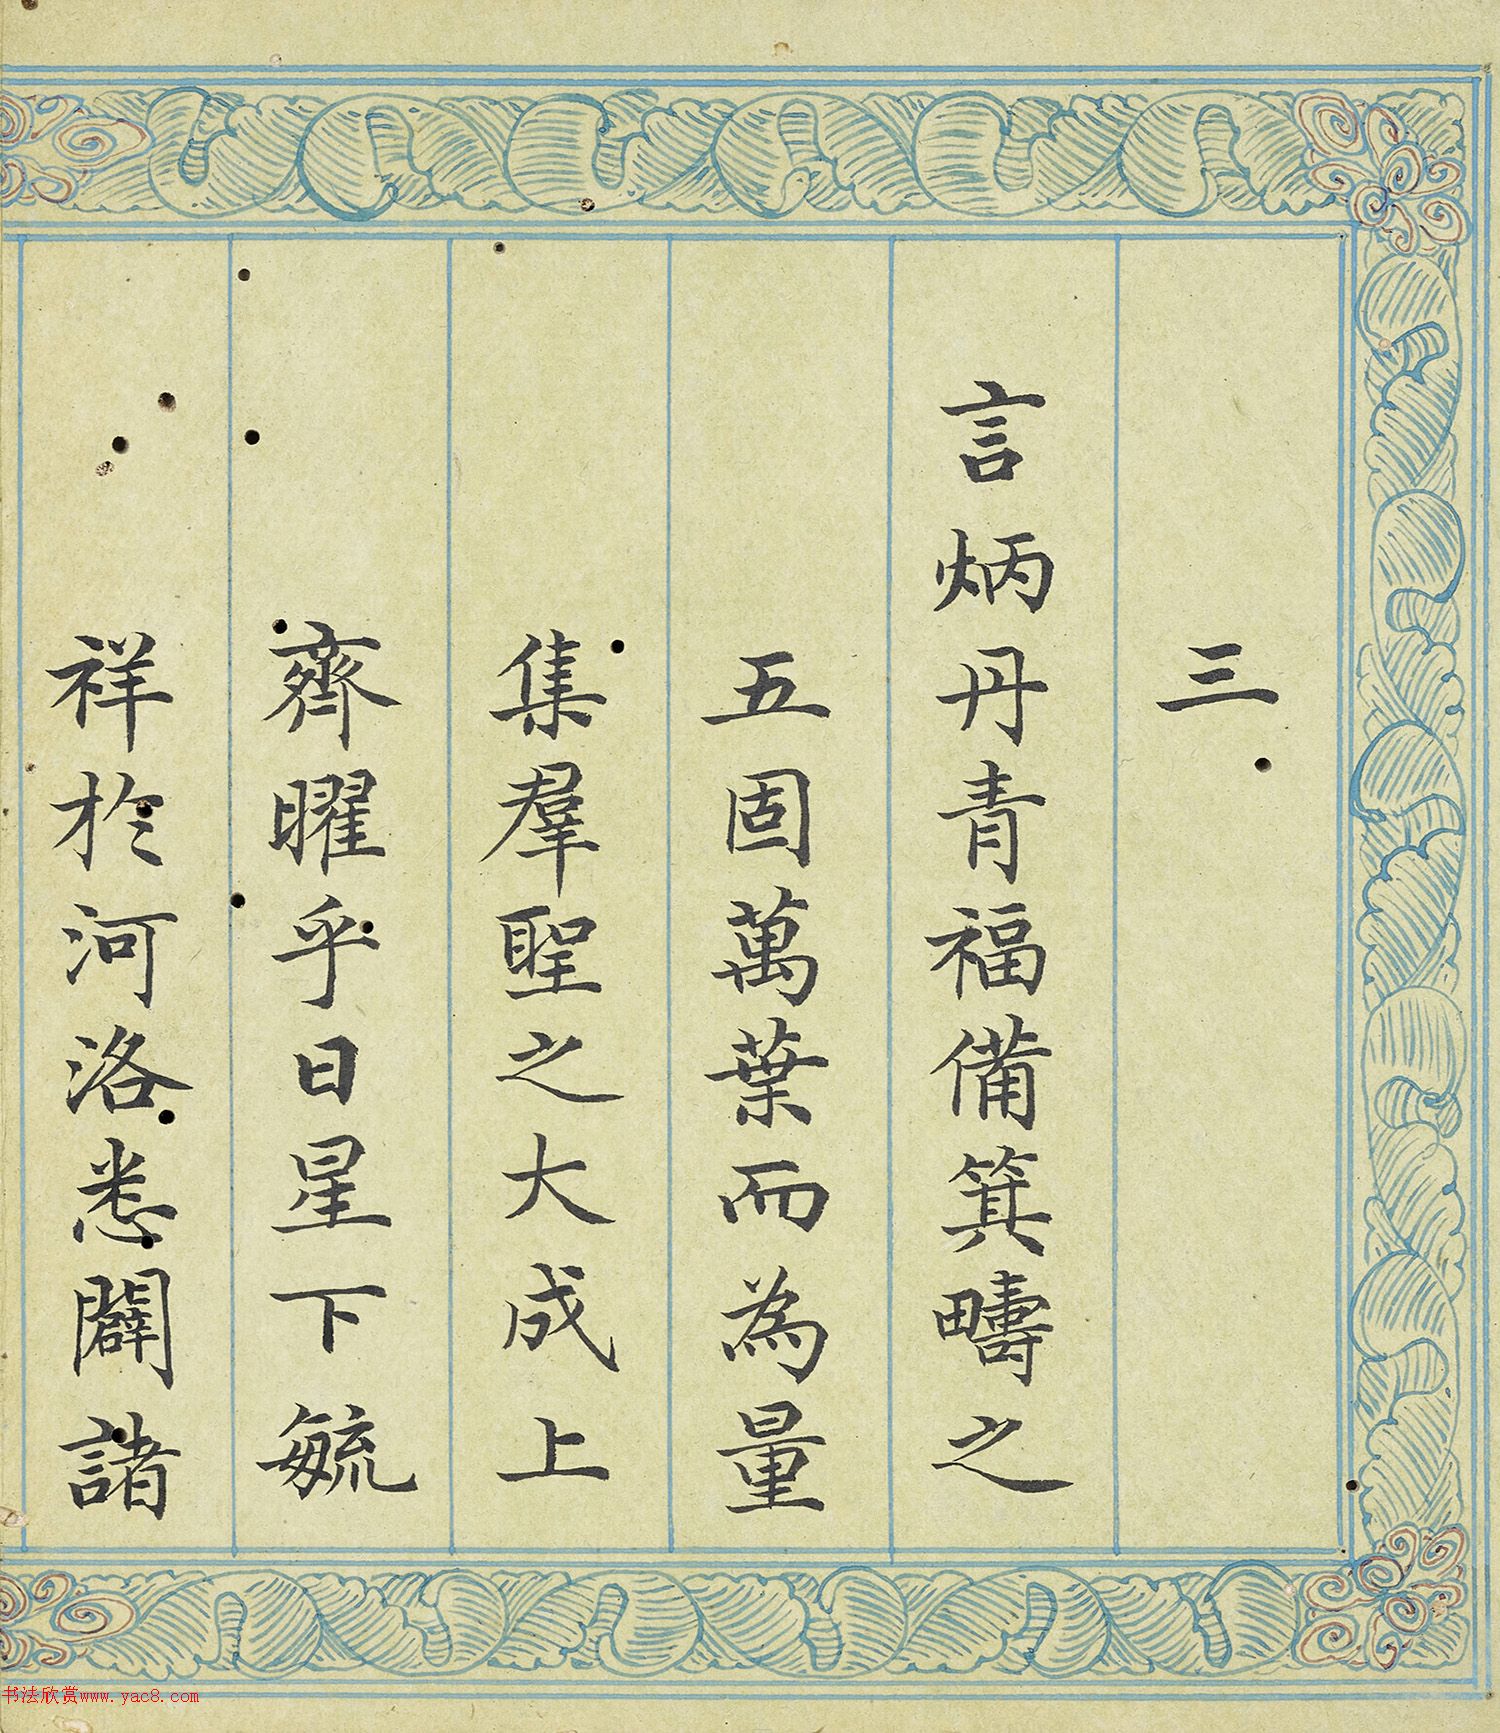 三
言炳丹青福備箕疇之
五固萬葉而為量
集羣聖之大成上
齊曜乎日星下毓
祥於河洛悉闢諸
书法欣赏www.yac8.com